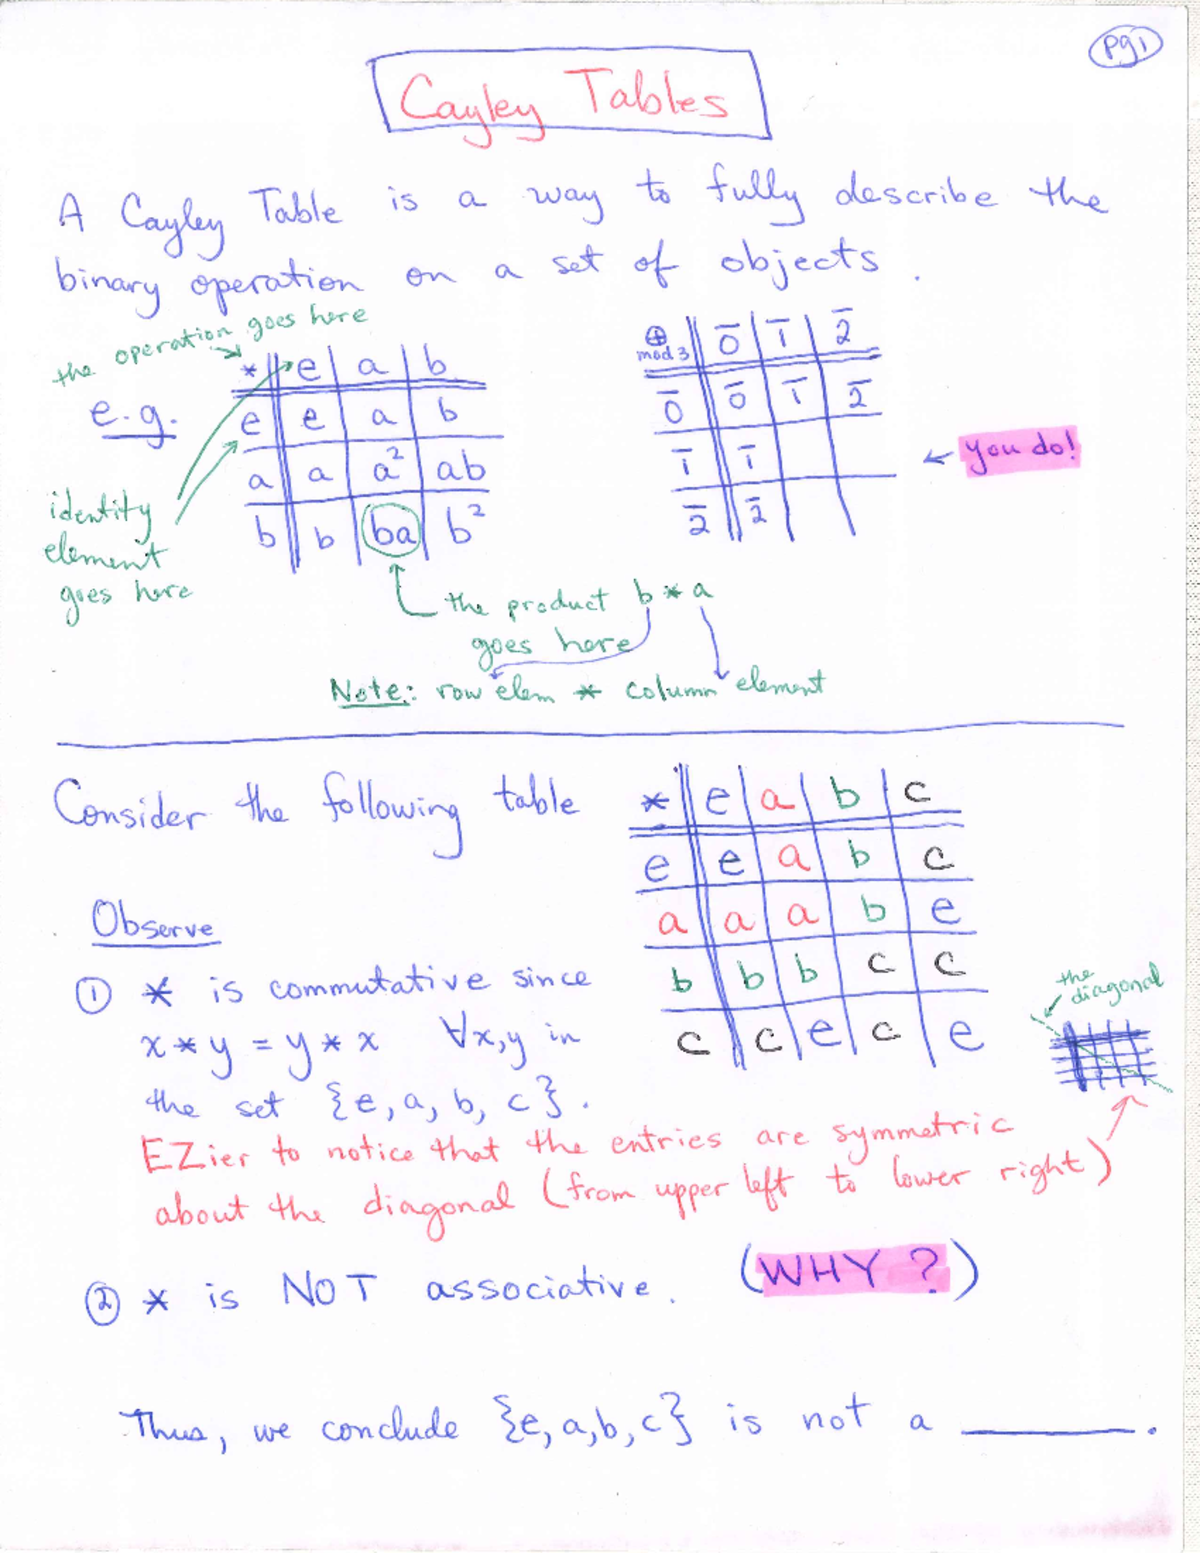 pg1
Cayley Tables
A Cayley Table is a way to fully describe the
binary operation on a set of objects.
the operation goes here
e.g.
* e a b
e e a b
a a a² ab
b b ba b²
identity
element
goes here
⊕ mod 3 0̅ 1̅ 2̅
0̅ 0̅ 1̅ 2̅
1̅ 1̅
2̅ 2̅
← you do!
the product b * a
goes here
Note: row elem * column element
Consider the following table
* e a b c
e e a b c
a a a b e
b b b c c
c c e c e
Observe
① * is commutative since
x * y = y * x ∀x,y in
the set {e, a, b, c}.
the
diagonal
EZier to notice that the entries are symmetric
about the diagonal (from upper left to lower right)
② * is NOT associative. (WHY ?)
Thus, we conclude {e,a,b,c} is not a ______.